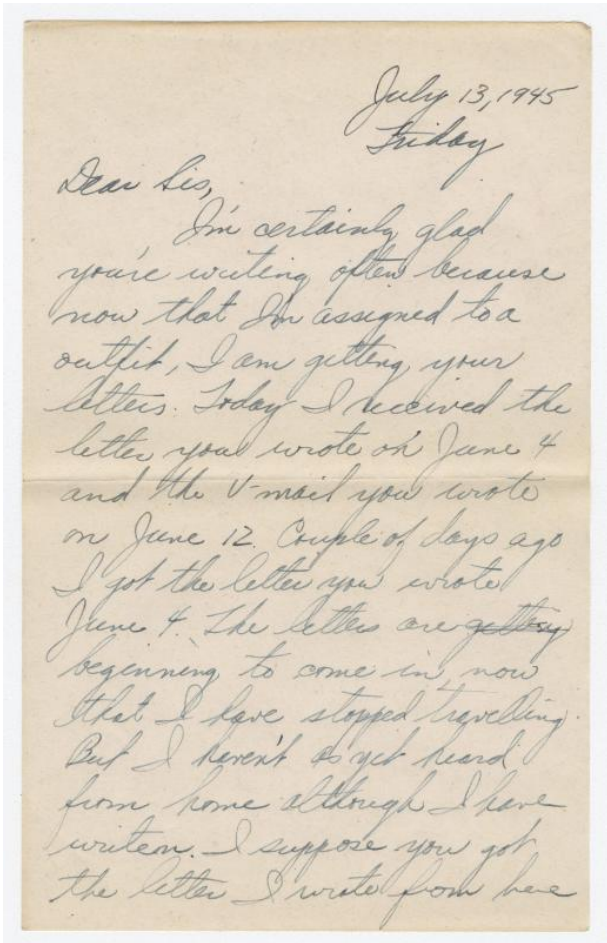 July 13, 1945
Friday
Dear Sis,
I'm certainly glad
you're writing often because
now that I'm assigned to a
outfit, I am getting your
letters. Today I received the
letter you wrote on June 4
and the V-mail you wrote
on June 12. Couple of days ago
I got the letter you wrote
June 4. The letters are getting
beginning to come in, now
that I have stopped travelling.
But I haven't as yet heard
from home although I have
writen. I suppose you got
the letter I wrote from here